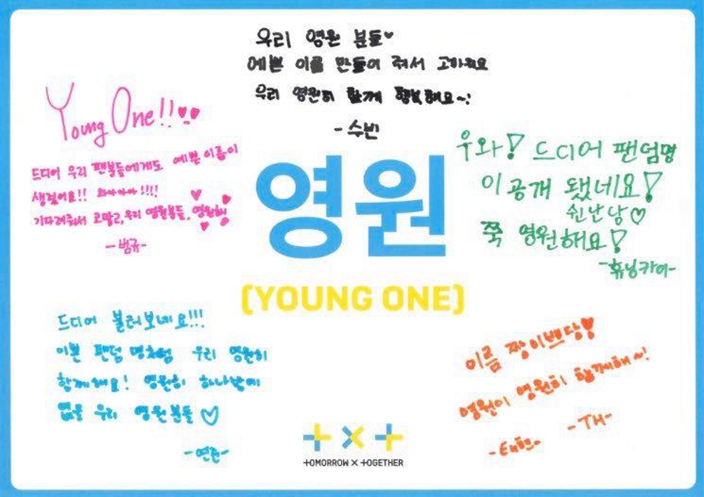 우리 영원 분들♡
예쁜 이름 만들어 줘서 고마워요
우리 영원히 함께 행복해요~!
-수빈
Young One!!♡♡
드디어 우리 팬분들에게도 예쁜이름이
생겼어요!! 와아아아!!!!
기다려줘서 고맙고, 우리 영원분들, 영원해
-범규-
우와! 드디어 팬덤명
이 공개 됐네요!
신난당♡
쭉 영원해요!
-휴닝카이-
영원
(YOUNG ONE)
드디어 불러보네요!!!
이쁜 팬덤 명처럼 우리 영원히
함께해요! 영원히 하나밖에
없을 우리 영원분들♡
-연준-
이름 짱이쁘당♥
영원이 영원히 함께해~!
-태현- -TH-
TOMORROW X TOGETHER